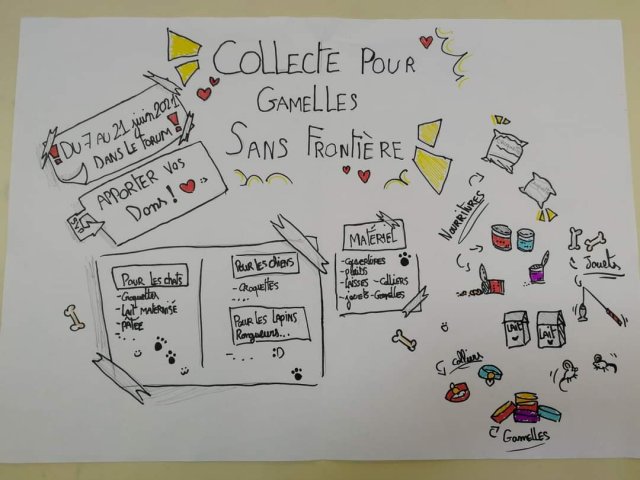 COLLECTE POUR
GAMELLES
SANS FRONTIÈRE
! DU 7 AU 21 juin 2021 !
DANS LE FORUM
APPORTER VOS
DONS !
POUR les chats
- Croquettes
- LAIT MATERNISÉ
- PÂTÉE
- ....
POUR les chiens
- CROQUETTES
- ....
POUR les LAPINS
Rongeurs...
- .... :D
MATÉRIEL
- couvertures
- plaids
- LAISSES - Colliers
- jouets - Gamelles
NOURRITURES
LAIT
LAIT
Jouets
colliers
Gamelles